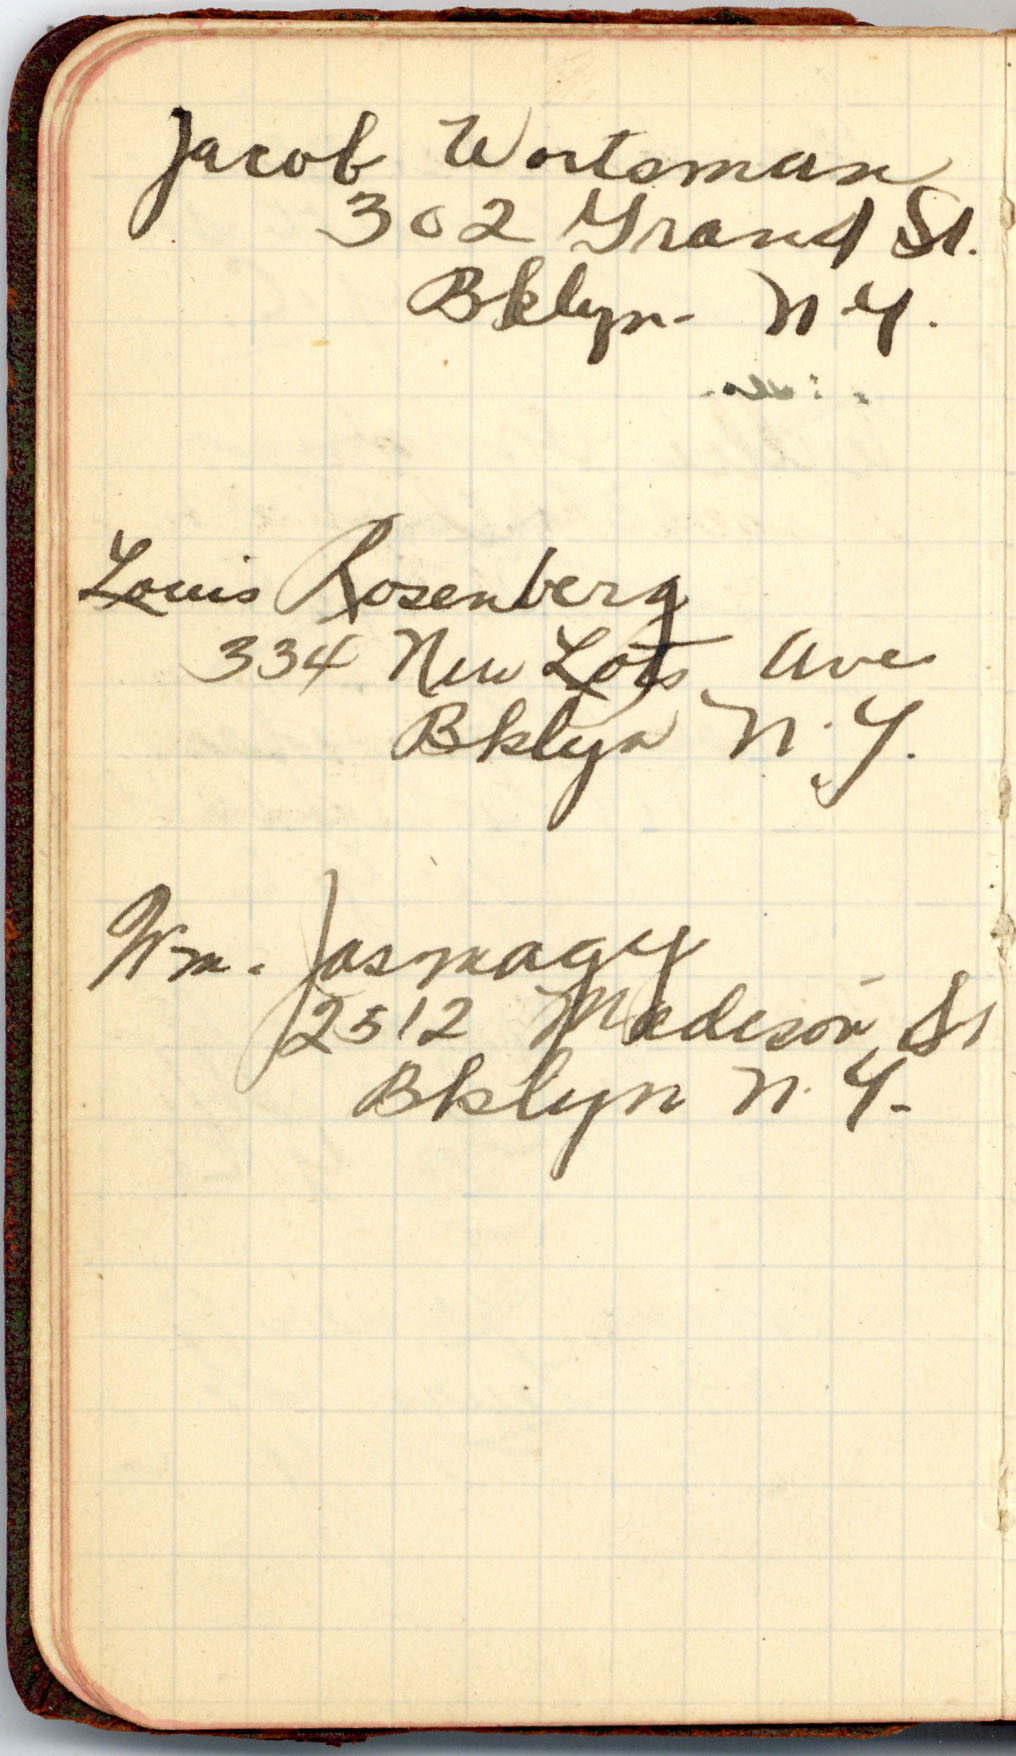 Jacob Wortsman
302 Grand St.
Bklyn- N.Y.
Louis Rosenberg
334 New Lots Ave
Bklyn N.Y.
Wm. Jasmagy
2512 Madison St
Bklyn N.Y.